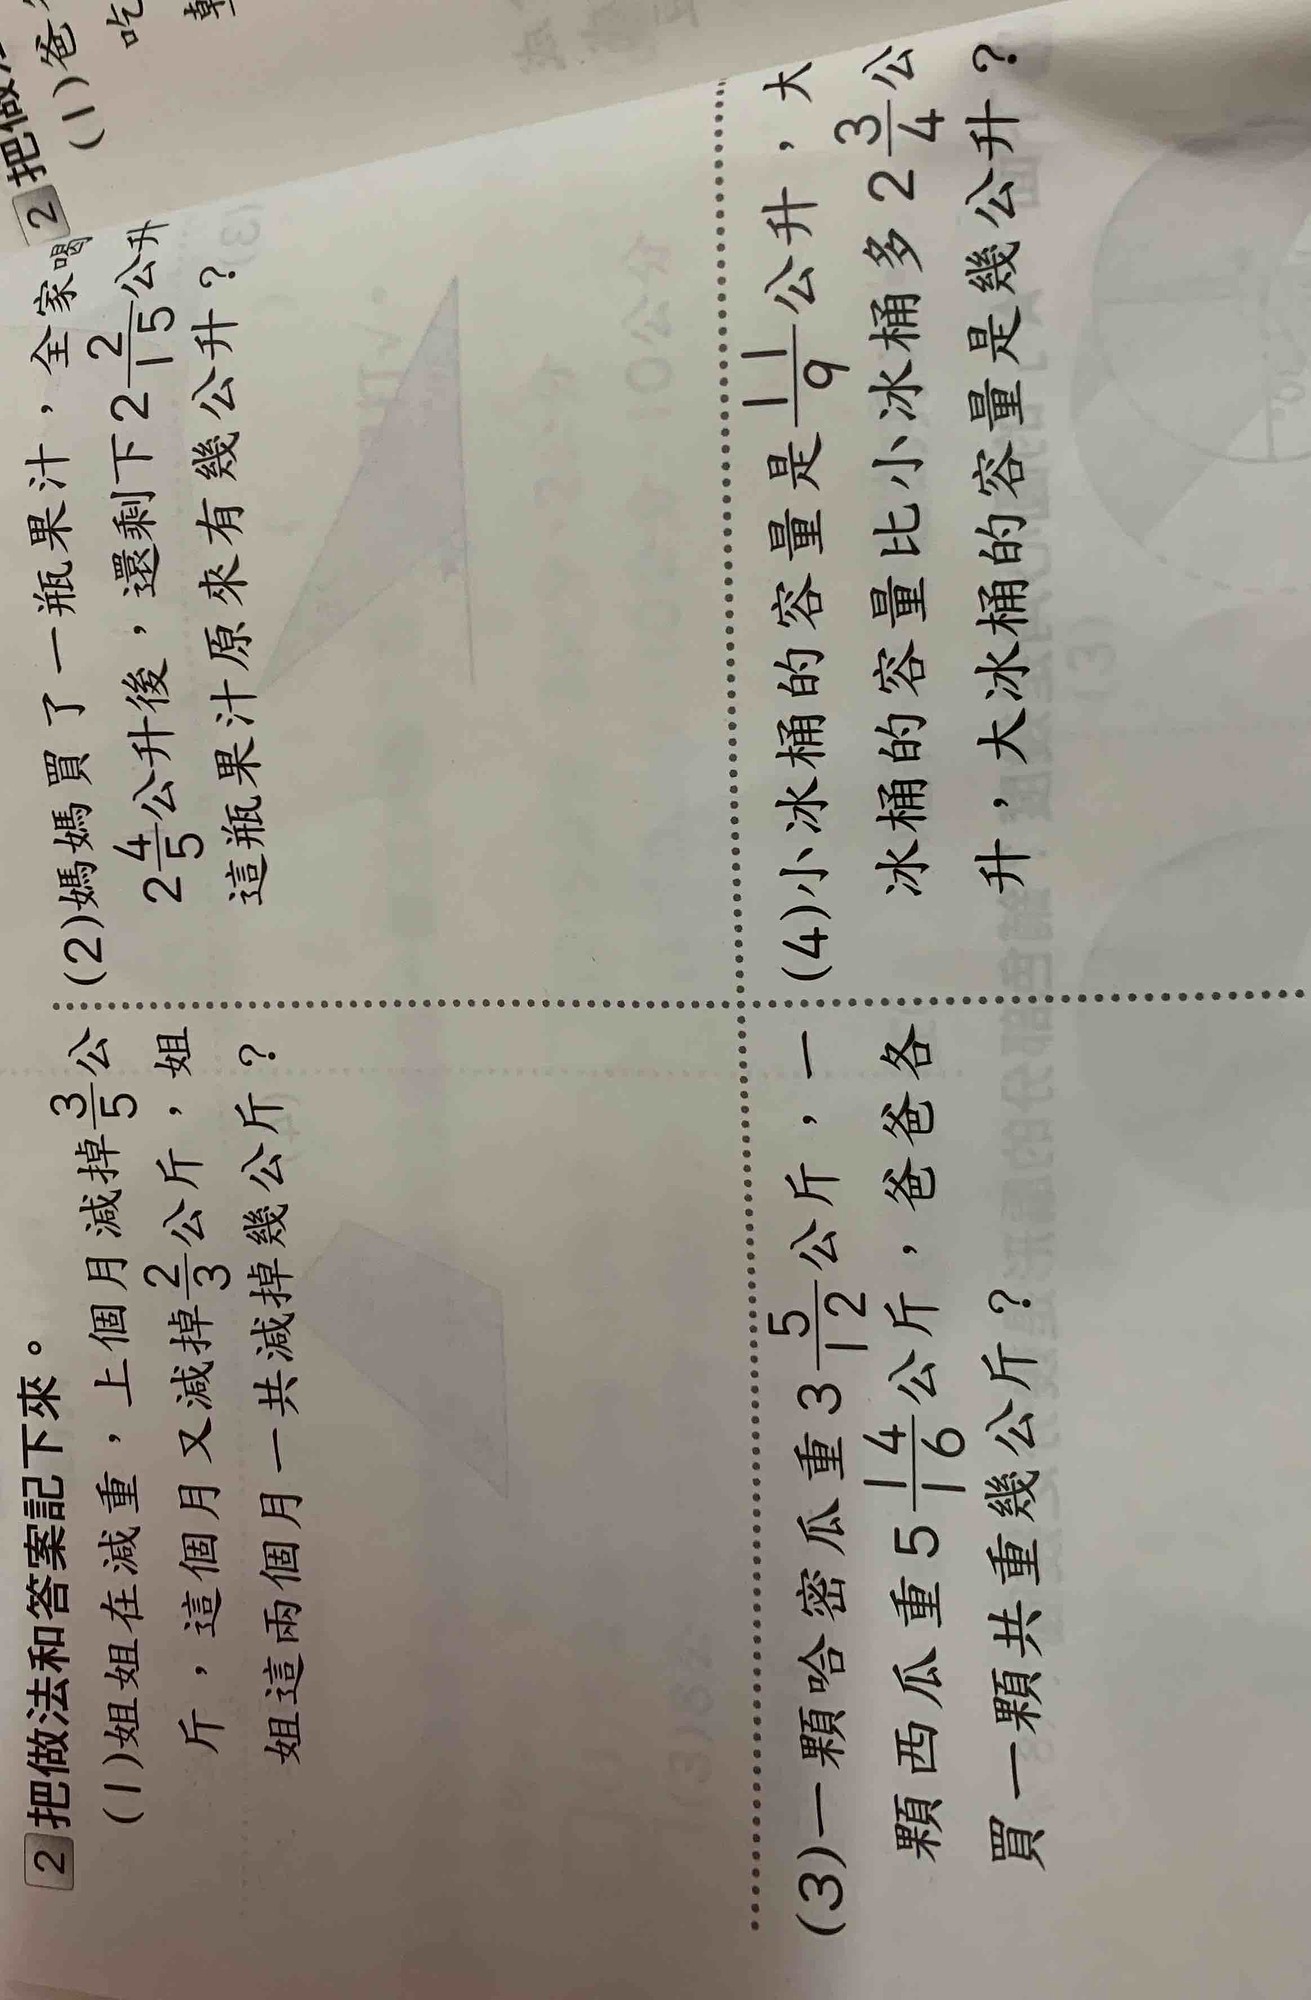 2 把做法和答案記下來。
(1)姐姐在減重，上個月減掉3/5公
斤，這個月又減掉2/3公斤，姐
姐這兩個月一共減掉幾公斤？
(2)媽媽買了一瓶果汁，全家喝
2 4/5公升後，還剩下2 2/15公升
這瓶果汁原來有幾公升？
(3)一顆哈密瓜重3 5/12公斤，一
顆西瓜重5 14/16公斤，爸爸各
買一顆共重幾公斤？
(4)小冰桶的容量是11/9公升，大
冰桶的容量比小冰桶多2 3/4公
升，大冰桶的容量是幾公升？
2 把做
(1)爸
吃